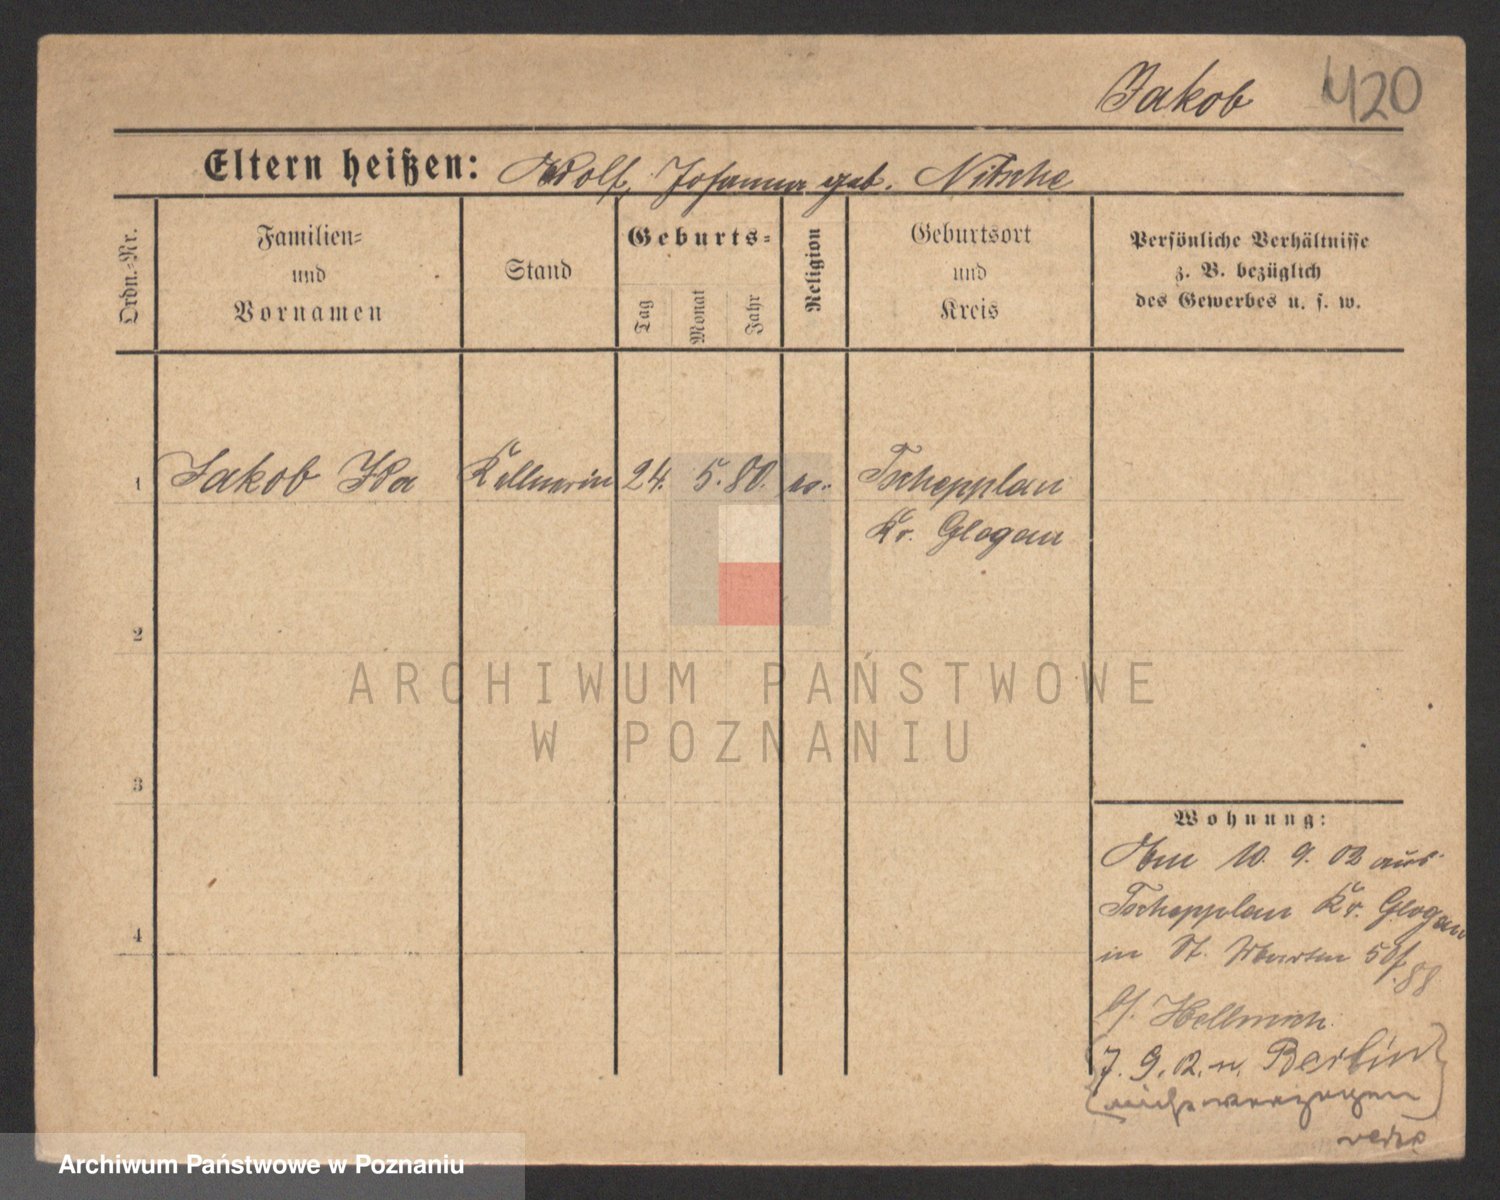 Jakob 420
Eltern heißen: Adolf, Johanna geb. Nitsche
Ordn.-Nr.
Familien-
und
Vornamen
Stand
Geburts-
Tag
Monat
Jahr
Religion
Geburtsort
und
Kreis
Persönliche Verhältnisse
z. B. bezüglich
des Gewerbes u. s. w.
1 Jakob Ida Kellnerin 24. 5. 80. ev. Tschepplau
Kr. Glogau
2
ARCHIWUM PAŃSTWOWE
W POZNANIU
3
Wohnung:
Am 10. 9. 02 aus
Tschepplau Kr. Glogau
in St. Martin
b/. Hellmich
7. 9. 02. n. Berlin
nicht verzogen
4
Archiwum Państwowe w Poznaniu